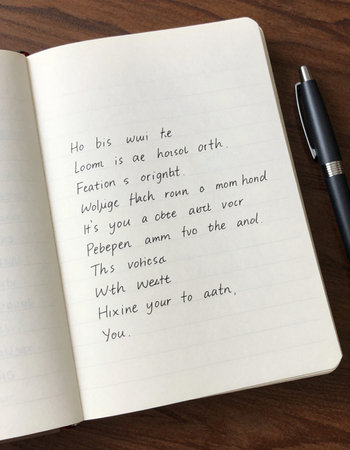 Ho bis wui te
Loom is ae hoisol orth.
Feation s orignbt.
Woljuge flach roun o mom hond
It's you a cbte abtl vocr
Pebepen amm fvo the anol.
Ths vohcsa
Wth westt
Hixine your to aatn,
You.